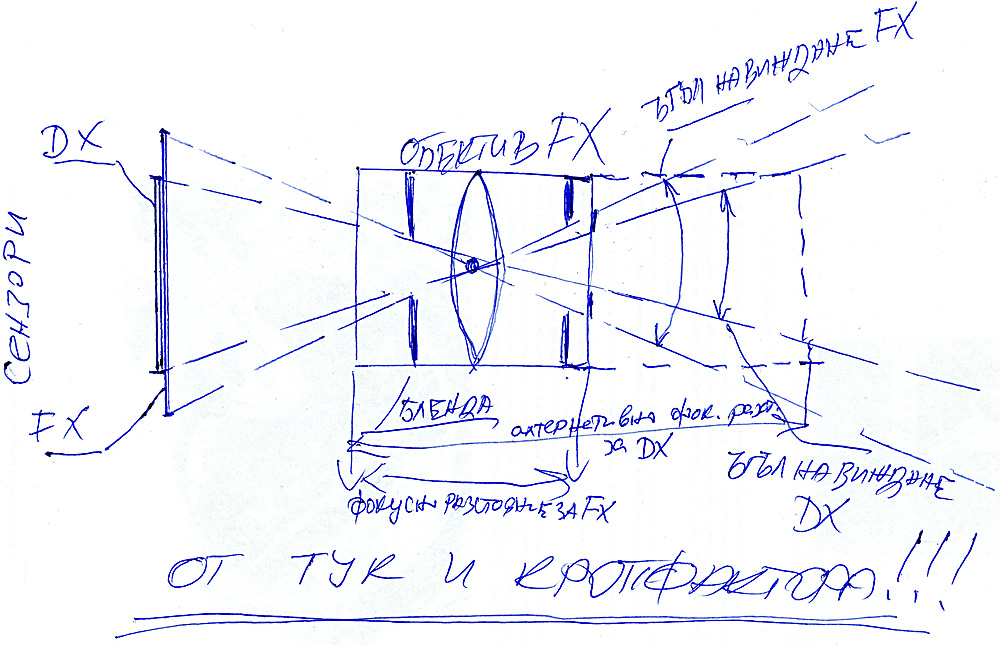 ЪГЪЛ НА ВИЖДАНЕ FX
DX
ОБЕКТИВ FX
СЕНЗОРИ
FX
БЛЕНДА
алтернативно фок. разт.
за DX
ЪГЪЛ НА ВИЖДАНЕ
DX
ФОКУСНО РАЗСТОЯНИЕ ЗА FX
ОТ ТУК И КРОПФАКТОРА!!!